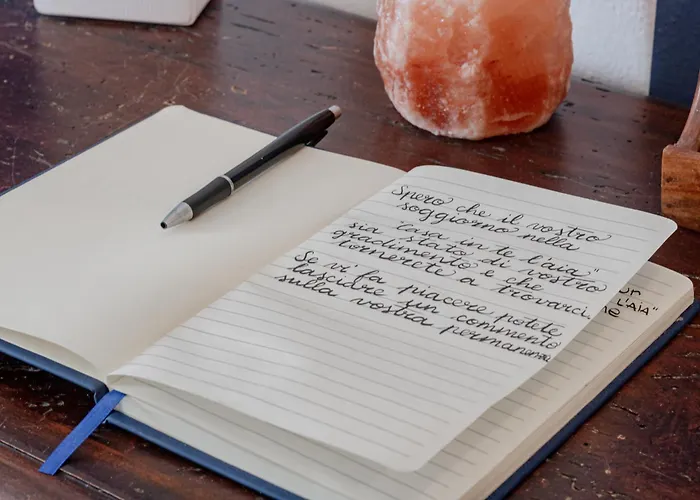 Spero che il vostro
soggiorno nella
"casa in te l'aia"
sia stato di vostro
gradimento e che
tornerete a trovarci.
Se vi fa piacere potete
lasciare un commento
sulla vostra permanenza
L'AIA"